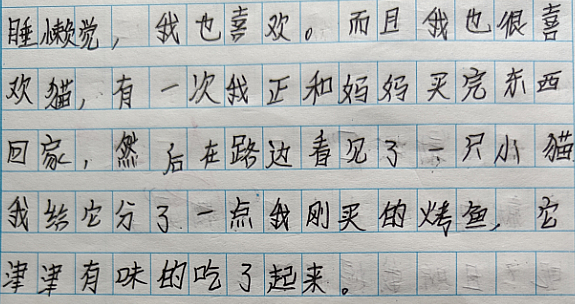 睡懒觉，我也喜欢。而且我也很喜
欢猫，有一次我正和妈妈买完东西
回家，然后在路边看见了一只小猫
我给它分了一点我刚买的烤鱼，它
津津有味的吃了起来。